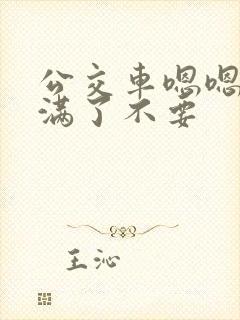 公交车嗯嗯
满了不要
王沁